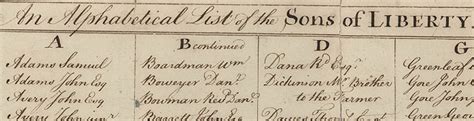 An Alphabetical List of the Sons of LIBERTY
A
Adams Samuel
Adams John Esq
Avery John Esq
Avery John
B continued
Boardman Wm
Boweyer Danl
Bowman Revd Danl
Baggett John Esq
D
Dana Rd Esqr
Dickinson Mr Brother
to the Farmer
Davies Thomas
G
Greenleaf
Gore John
Gore John